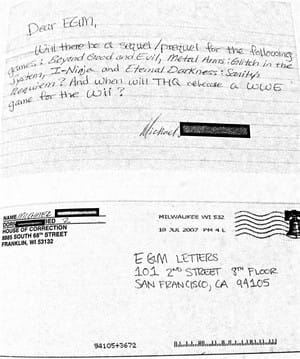 Dear EGM,
Will there be a sequel/prequel for the following
games: Beyond Good and Evil, Metal Arms: Glitch in the
System, I-Ninja and Eternal Darkness: Sanity's
Requiem? And when will THQ a WWE
game for the Wii?
Michael
NAME MICHAEL
DORM
HOUSE OF CORRECTION
8885 SOUTH 68TH STREET
FRANKLIN, WI 53132
MILWAUKEE WI 532
18 JUL 2007 PM 4 L
EGM LETTERS
101 2ND STREET 8TH FLOOR
SAN FRANCISCO, CA 94105
94105+3672